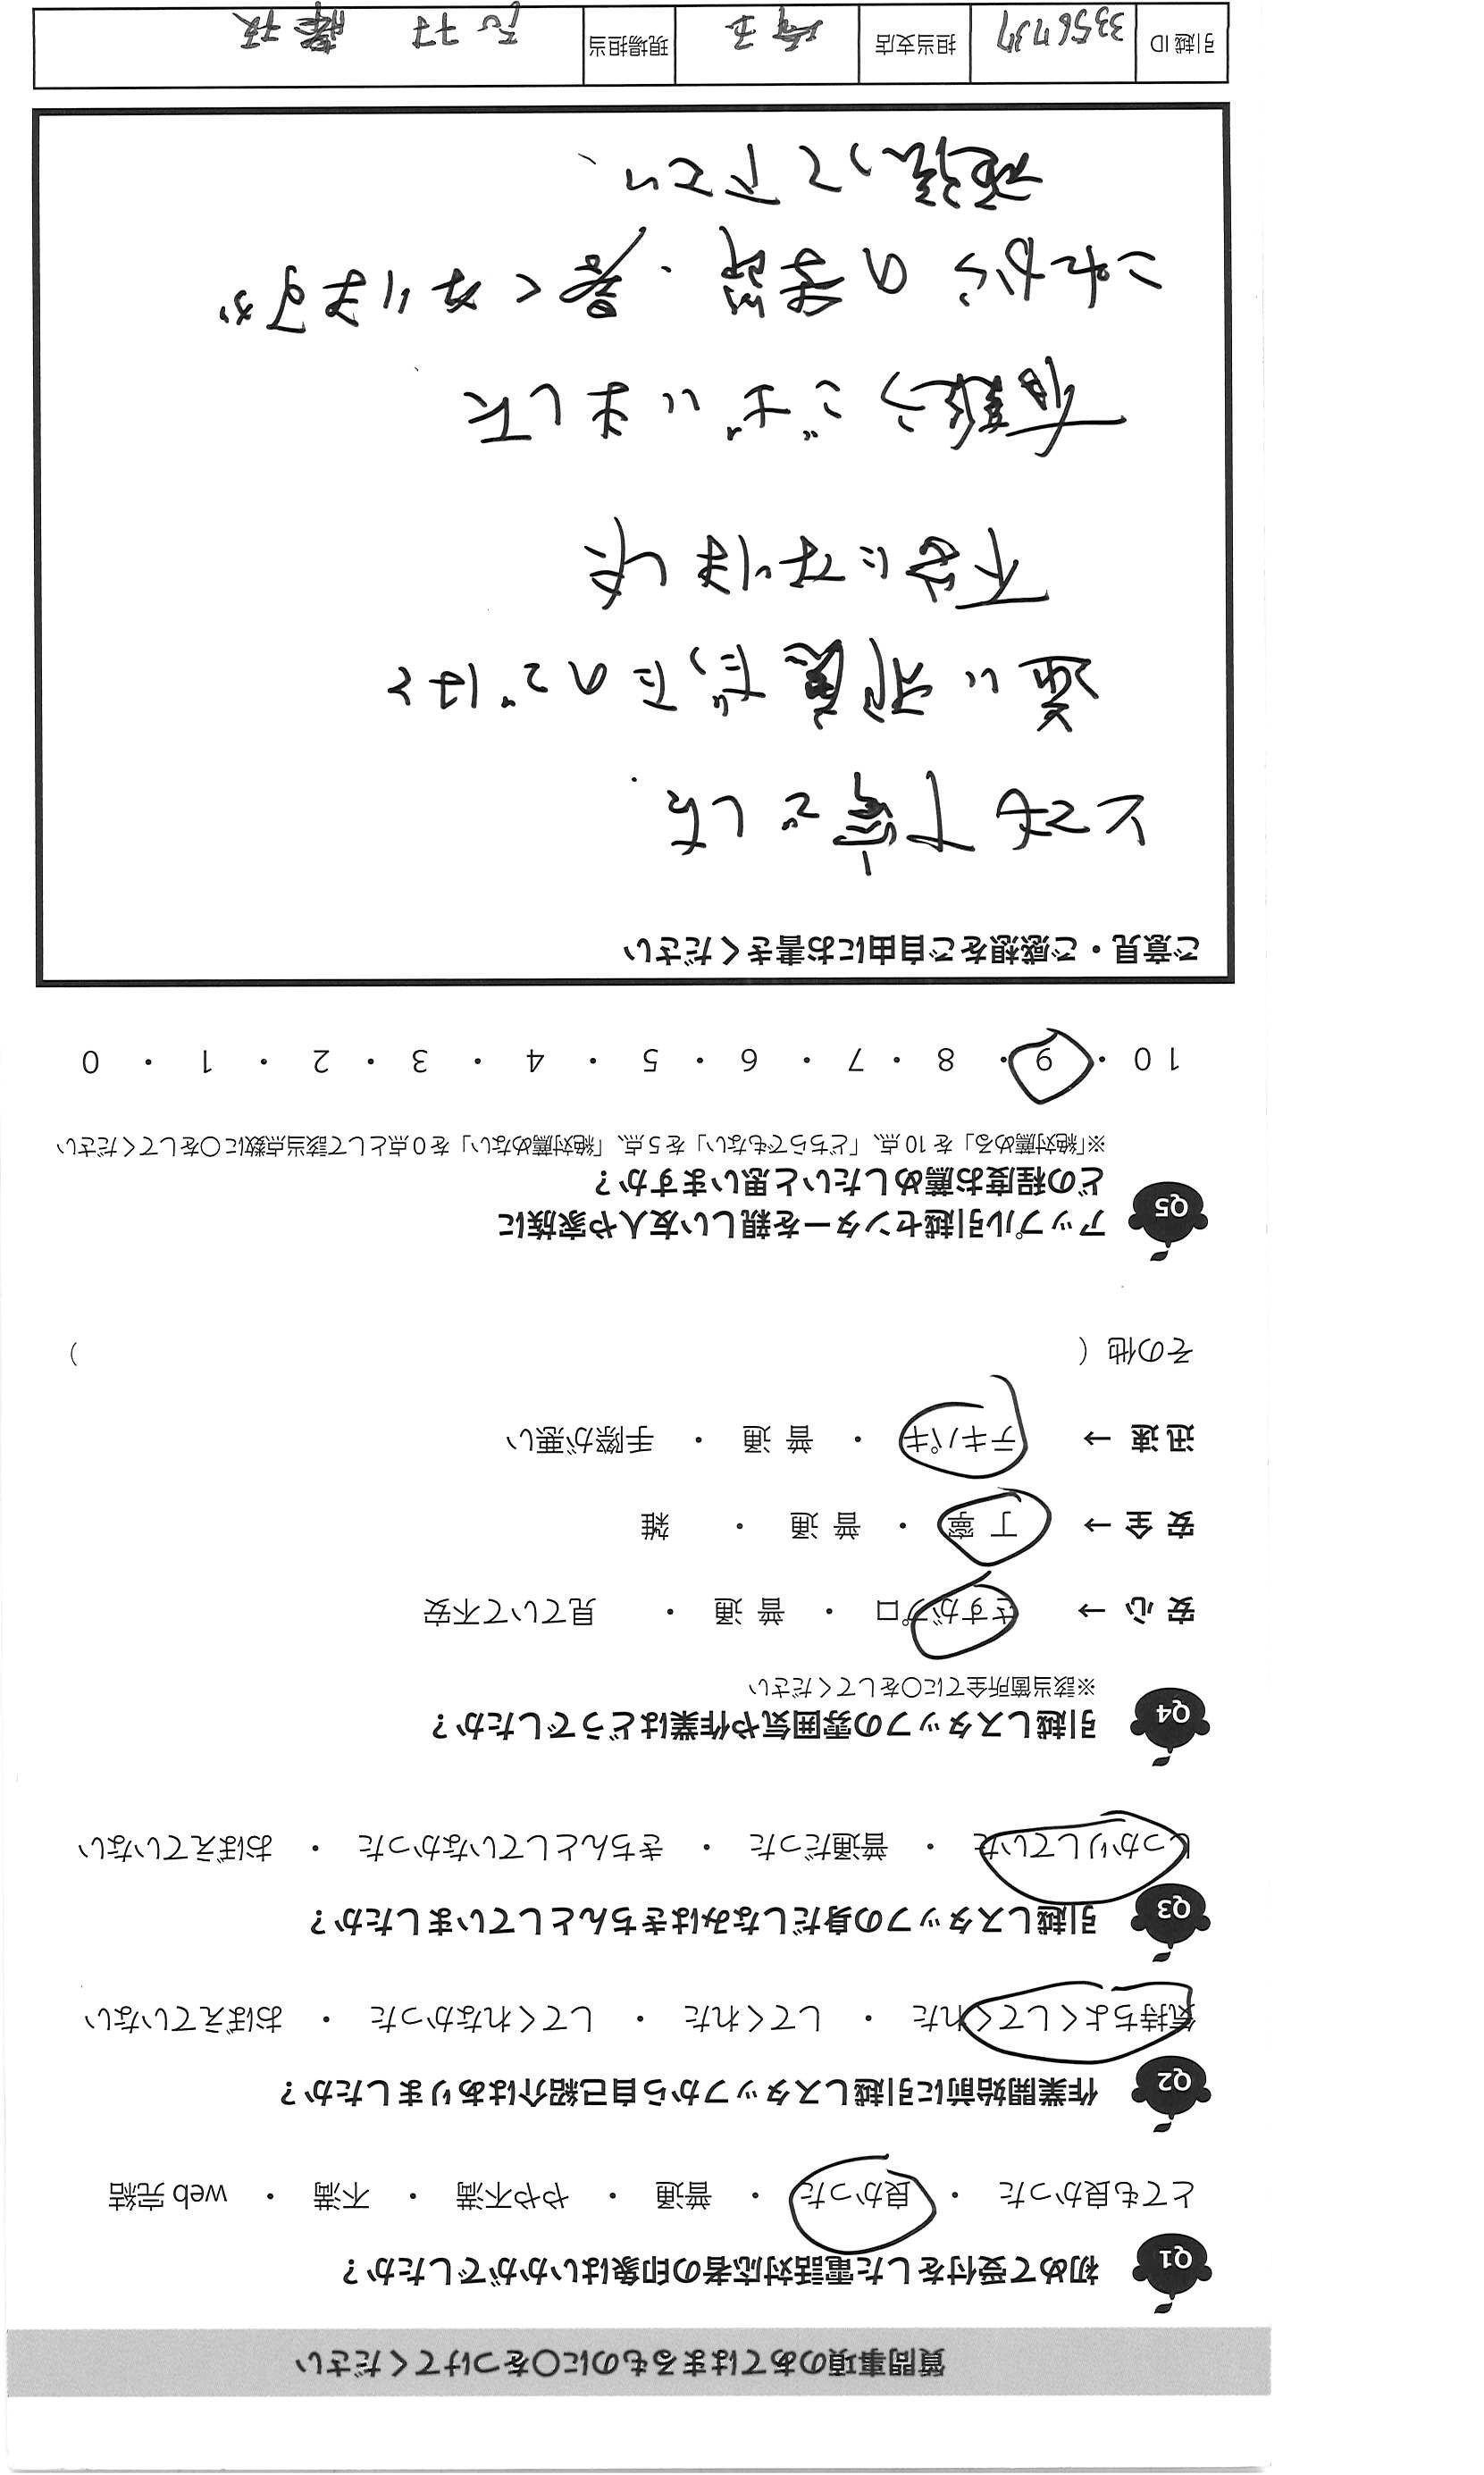 質問事項のあてはまるものに○をつけてください
Q1 初めて受付をした電話対応者の印象はいかがでしたか？
とても良かった ・ 良かった ・ 普通 ・ やや不満 ・ 不満 ・ web 完結
Q2 作業開始前に引越しスタッフから自己紹介はありましたか？
気持ちよくしてくれた ・ してくれた ・ してくれなかった ・ おぼえていない
Q3 引越しスタッフの身だしなみはきちんとしていましたか？
しっかりしていた ・ 普通だった ・ きちんとしていなかった ・ おぼえていない
Q4 引越しスタッフの雰囲気や作業はどうでしたか？
※該当箇所全てに○をしてください
安 心 → さすがプロ ・ 普 通 ・ 見ていて不安
安 全 → 丁 寧 ・ 普 通 ・ 雑
迅 速 → テキパキ ・ 普 通 ・ 手際が悪い
その他（ ）
Q5 アップル引越センターを親しい友人や家族に
どの程度お薦めしたいと思いますか？
※「絶対薦める」を 10 点、「どちらでもない」を 5 点、「絶対薦めない」を 0 点として該当点数に○をしてください
10 ・ 9 ・ 8 ・ 7 ・ 6 ・ 5 ・ 4 ・ 3 ・ 2 ・ 1 ・ 0
ご意見・ご感想をご自由にお書きください
とても丁寧でした
変い邪魔だったのではと
不安になりました
有難うございました
これからの季節、暑くなりますが
頑張って下さい、
引越 ID 3356737 担当支店 埼玉 現場担当